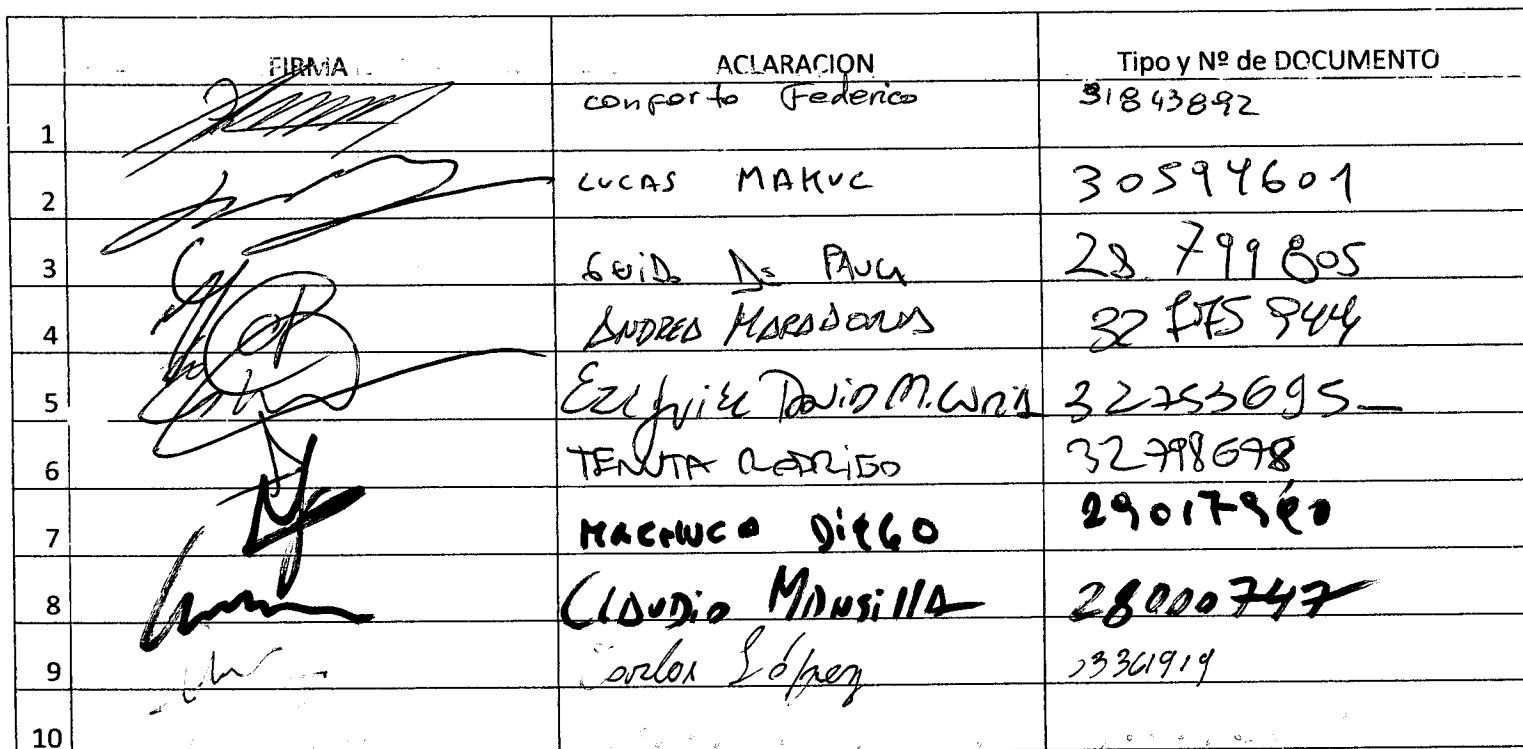 FIRMA ACLARACION Tipo y Nº de DOCUMENTO
1 Conforto Federico 31843892
2 LUCAS MAKUC 30594601
3 GUIDO De PAULA 28 799 805
4 ANDREA MARADONA 32 775 944
5 EZEQUIEL DAVID M. 32753695
6 TENUTA RODRIGO 32798678
7 DIEGO
8 CLAUDIO MANSILLA 28000747
9 Carlos López 23361919
10